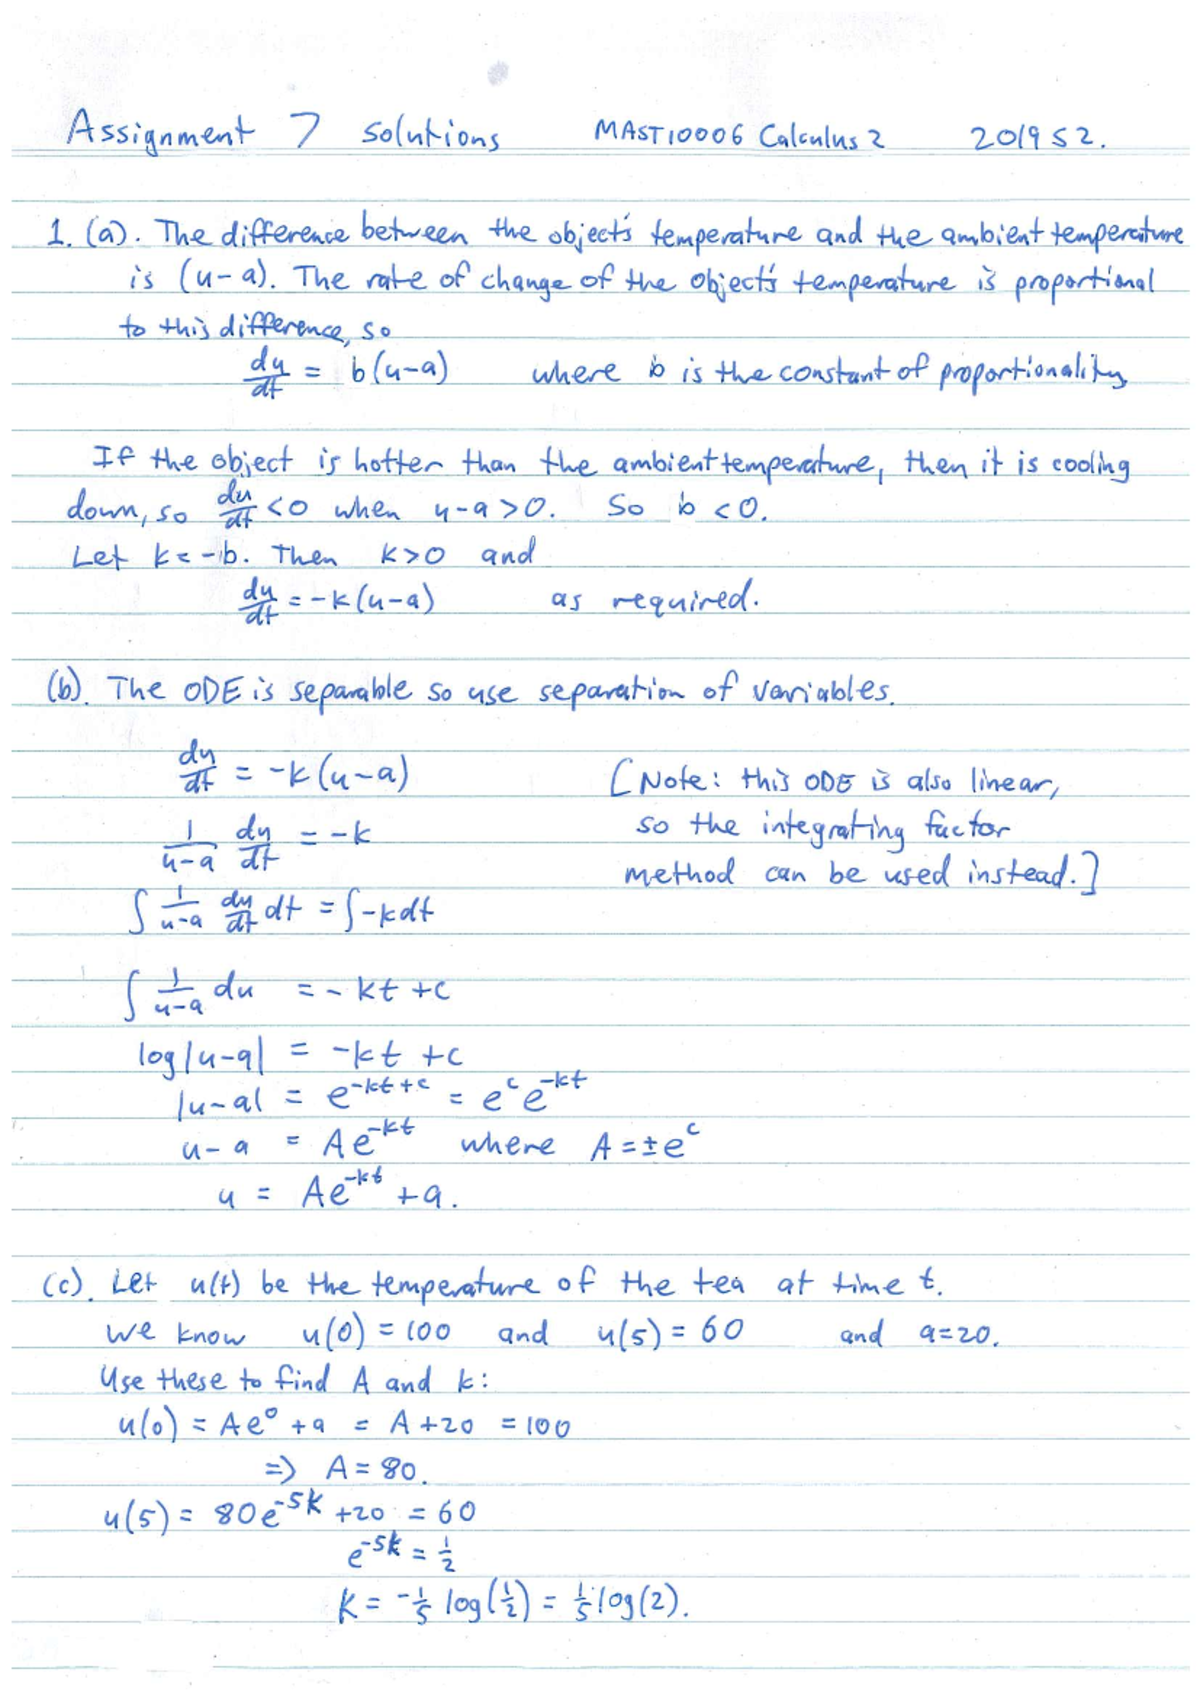 Assignment 7 solutions MAST10006 Calculus 2 2019 S2.
1. (a). The difference between the object's temperature and the ambient temperature
is (u-a). The rate of change of the object's temperature is proportional
to this difference, so
du/dt = b(u-a) where b is the constant of proportionality
If the object is hotter than the ambient temperature, then it is cooling
down, so du/dt <0 when u-a>0. So b<0.
Let k=-b. Then k>0 and
du/dt = -k(u-a) as required.
(b). The ODE is separable so use separation of variables.
du/dt = -k(u-a) [Note: this ODE is also linear,
1/(u-a) du/dt = -k so the integrating factor
method can be used instead.]
∫ 1/(u-a) du/dt dt = ∫-kdt
∫ 1/(u-a) du = -kt +c
log|u-a| = -kt +c
|u-a| = e^(-kt+c) = e^c e^(-kt)
u-a = Ae^(-kt) where A=±e^c
u = Ae^(-kt) +a.
(c). Let u(t) be the temperature of the tea at time t.
We know u(0)=100 and u(5)=60 and a=20.
Use these to find A and k:
u(0) = Ae^0 +a = A+20 =100
=> A=80.
u(5) = 80e^(-5k) +20 = 60
e^(-5k) = 1/2
k = -1/5 log(1/2) = 1/5 log(2).